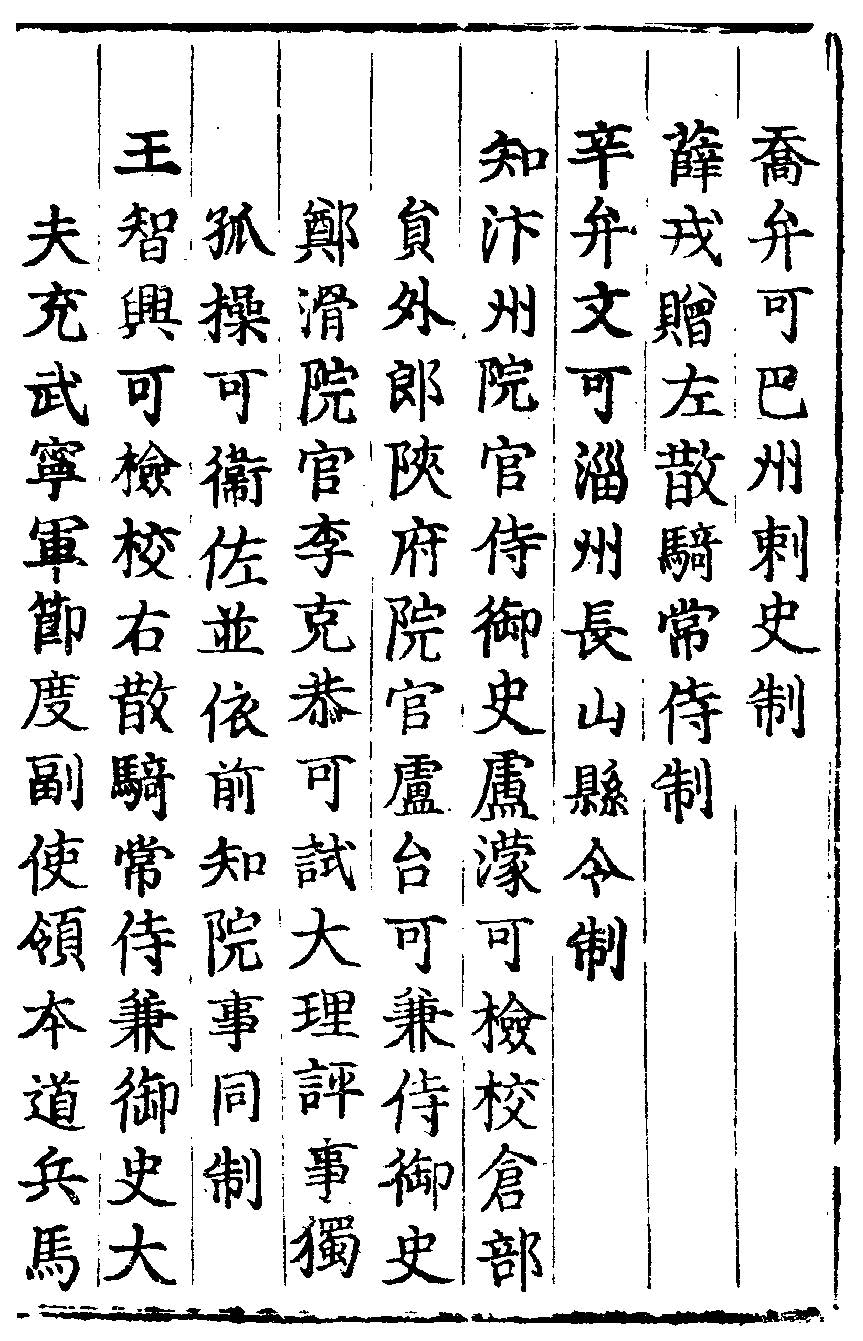 喬弁可巴州刺史制
薛戎贈左散騎常侍制
辛弁文可淄州長山縣令制
知汴州院官侍御史盧濛可檢校倉部
貟外郎陝府院官盧台可兼侍御史
鄭滑院官李克恭可試大理評事獨
孤操可衞佐並依前知院事同制
王智興可檢校右散騎常侍兼御史大
夫充武寧軍節度副使領本道兵馬